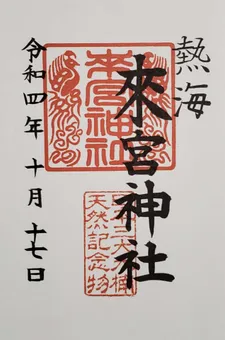 熱海
來宮神社
來宮神社
大樟
天然記念物
令和四年十月十七日